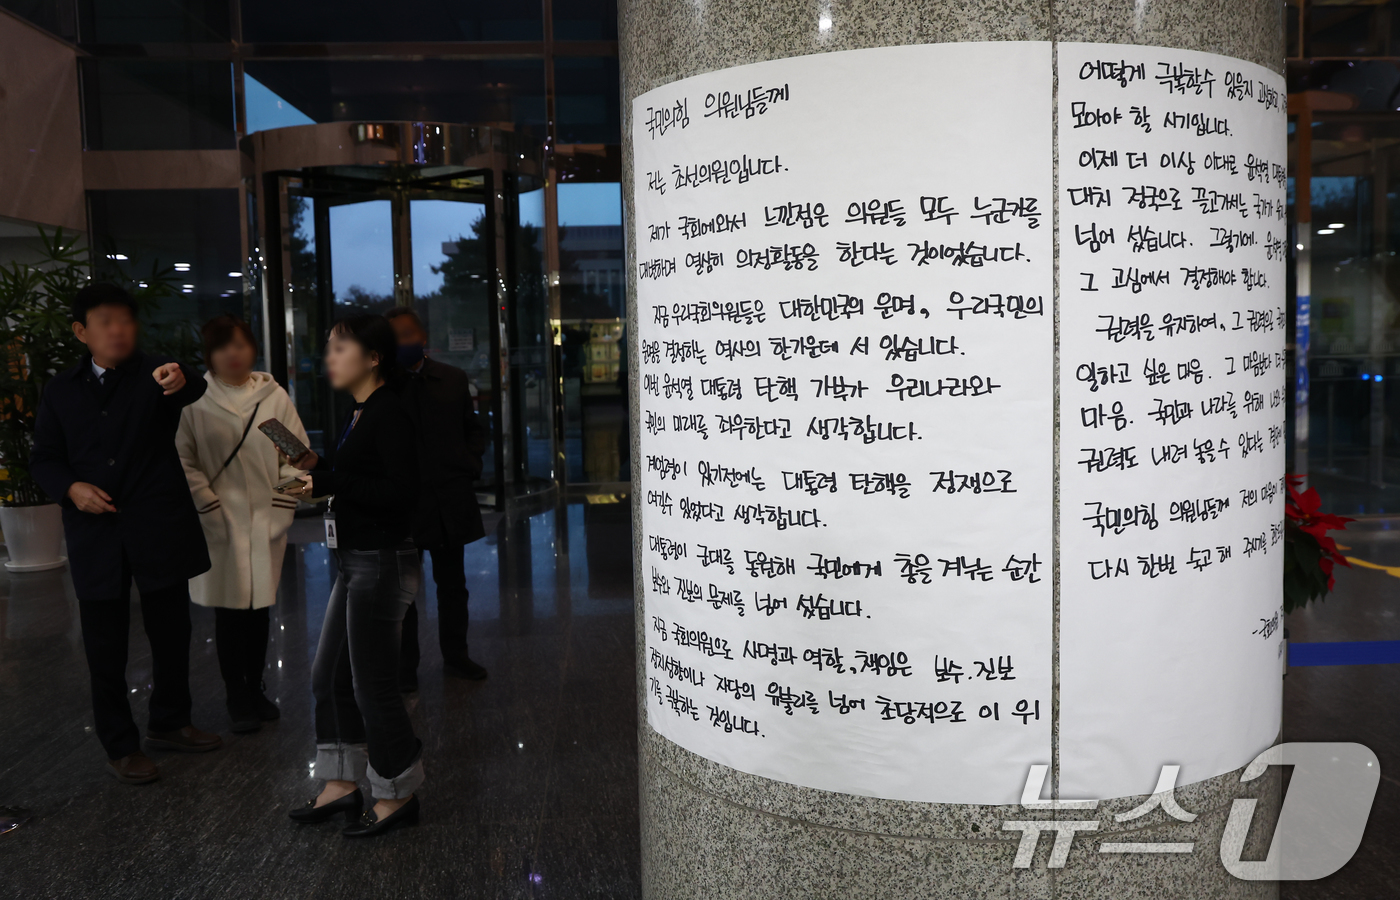 국민의힘 의원님들께
저는 초선의원입니다.
제가 국회에와서 느낀점은 의원들 모두 누군가를
대변하며 열심히 의정활동을 한다는 것이었습니다.
지금 우리국회의원들은 대한민국의 운명, 우리국민의
운명을 결정하는 역사의 한가운데 서 있습니다.
이번 윤석열 대통령 탄핵 가부가 우리나라와
국민의 미래를 좌우한다고 생각합니다.
계엄령이 있기전에는 대통령 탄핵을 정쟁으로
여길수 있었다고 생각합니다.
대통령이 군대를 동원해 국민에게 총을 겨누는 순간
보수와 진보의 문제를 넘어 섰습니다.
지금 국회의원으로 사명과 역할, 책임은 보수.진보
정치성향이나 자당의 유불리를 넘어 초당적으로 이 위
기를 극복하는 것입니다.
어떻게 극복할수 있을지 고심하고,
모아야 할 시기입니다.
이제 더 이상 이대로 윤석열
대치 정국으로 끌고가서는 국가가
넘어 섰습니다. 그렇기에. 윤석열
그 고심에서 결정해야 합니다.
권력을 유지하여, 그 권력으로
일하고 싶은 마음. 그 마음보다 더
마음. 국민과 나라를 위해 나의
권력도 내려 놓을 수 있다는
국민의힘 의원님들께 저의 마음이
다시 한번 숙고 해 주시기를
-국회의원
뉴스1